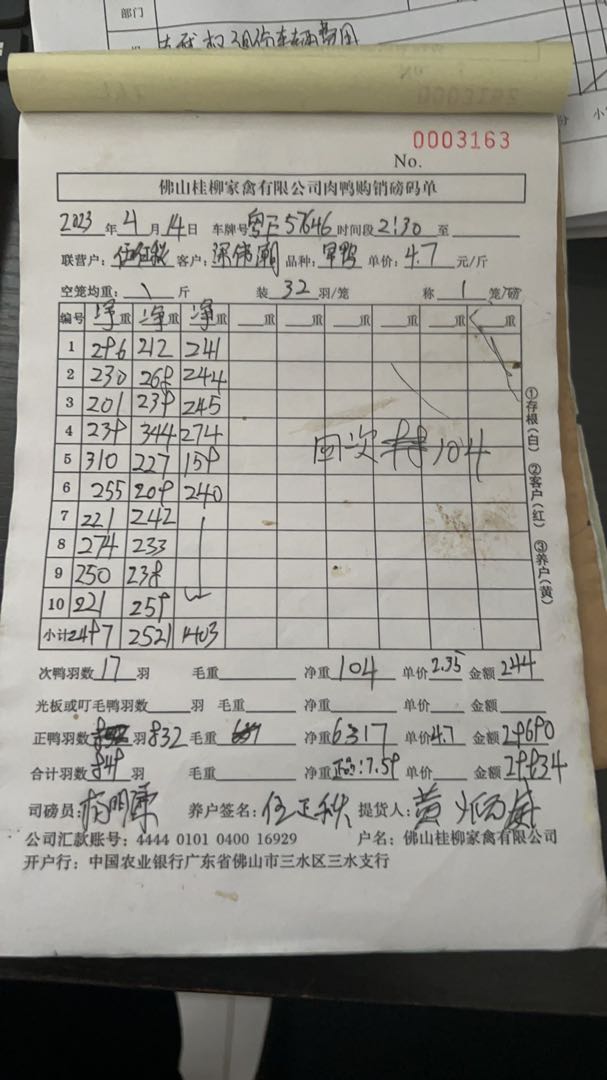 部门
0003163
No.
佛山桂柳家禽有限公司肉鸭购销磅码单
2023年4月14日 车牌号粤E57646时间段2:30至
联营户： 客户：梁伟潮 品种： 单价：4.7元/斤
空笼均重：\斤 装32羽/笼 称1笼/磅
编号 净重 净重 净重 重 重 重 重 重 重
1 296 212 241
2 230 268 244
3 201 239 245
4 239 344 274
5 310 227 159
6 255 209 240
7 221 242
8 274 233
9 250 238
10 221 259
小计 2497 2521 1403
回次 104
①存根（白） ②客户（红） ③养户（黄）
次鸭羽数17羽 毛重 净重104 单价2.35 金额244
光板或叮毛鸭羽数 羽 毛重 净重 单价 金额
正鸭羽数 羽832 毛重 净重6317 单价4.7 金额29690
合计羽数849羽 净重 :7.59 单价 金额29934
司磅员： 养户签名：伍正秋 提货人：黄
公司汇款账号：4444 0101 0400 16929 户名：佛山桂柳家禽有限公司
开户行：中国农业银行广东省佛山市三水区三水支行